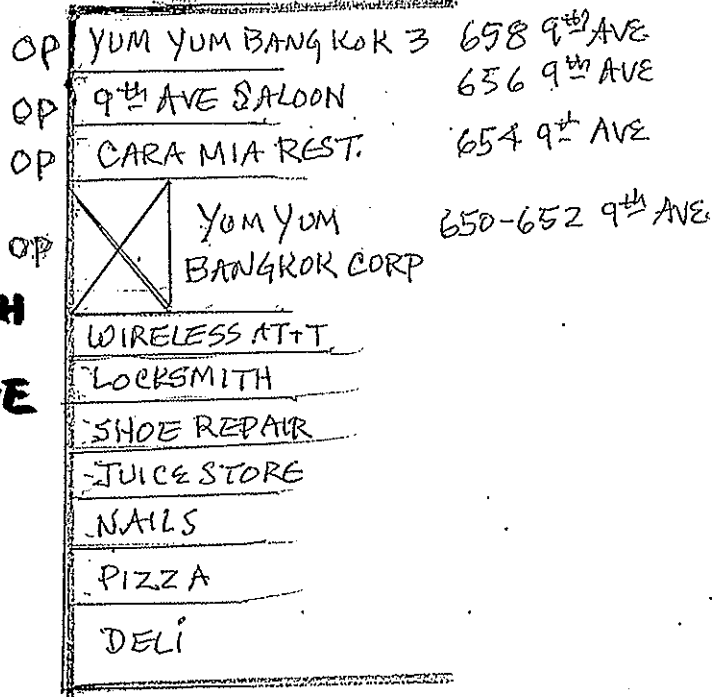 OP YUM YUM BANGKOK 3 658 9th AVE
OP 9th AVE SALOON 656 9th AVE
OP CARA MIA REST. 654 9th AVE
OP YUM YUM 650-652 9th AVE.
BANGKOK CORP
H
WIRELESS AT+T
E
LOCKSMITH
SHOE REPAIR
JUICE STORE
NAILS
PIZZA
DELi